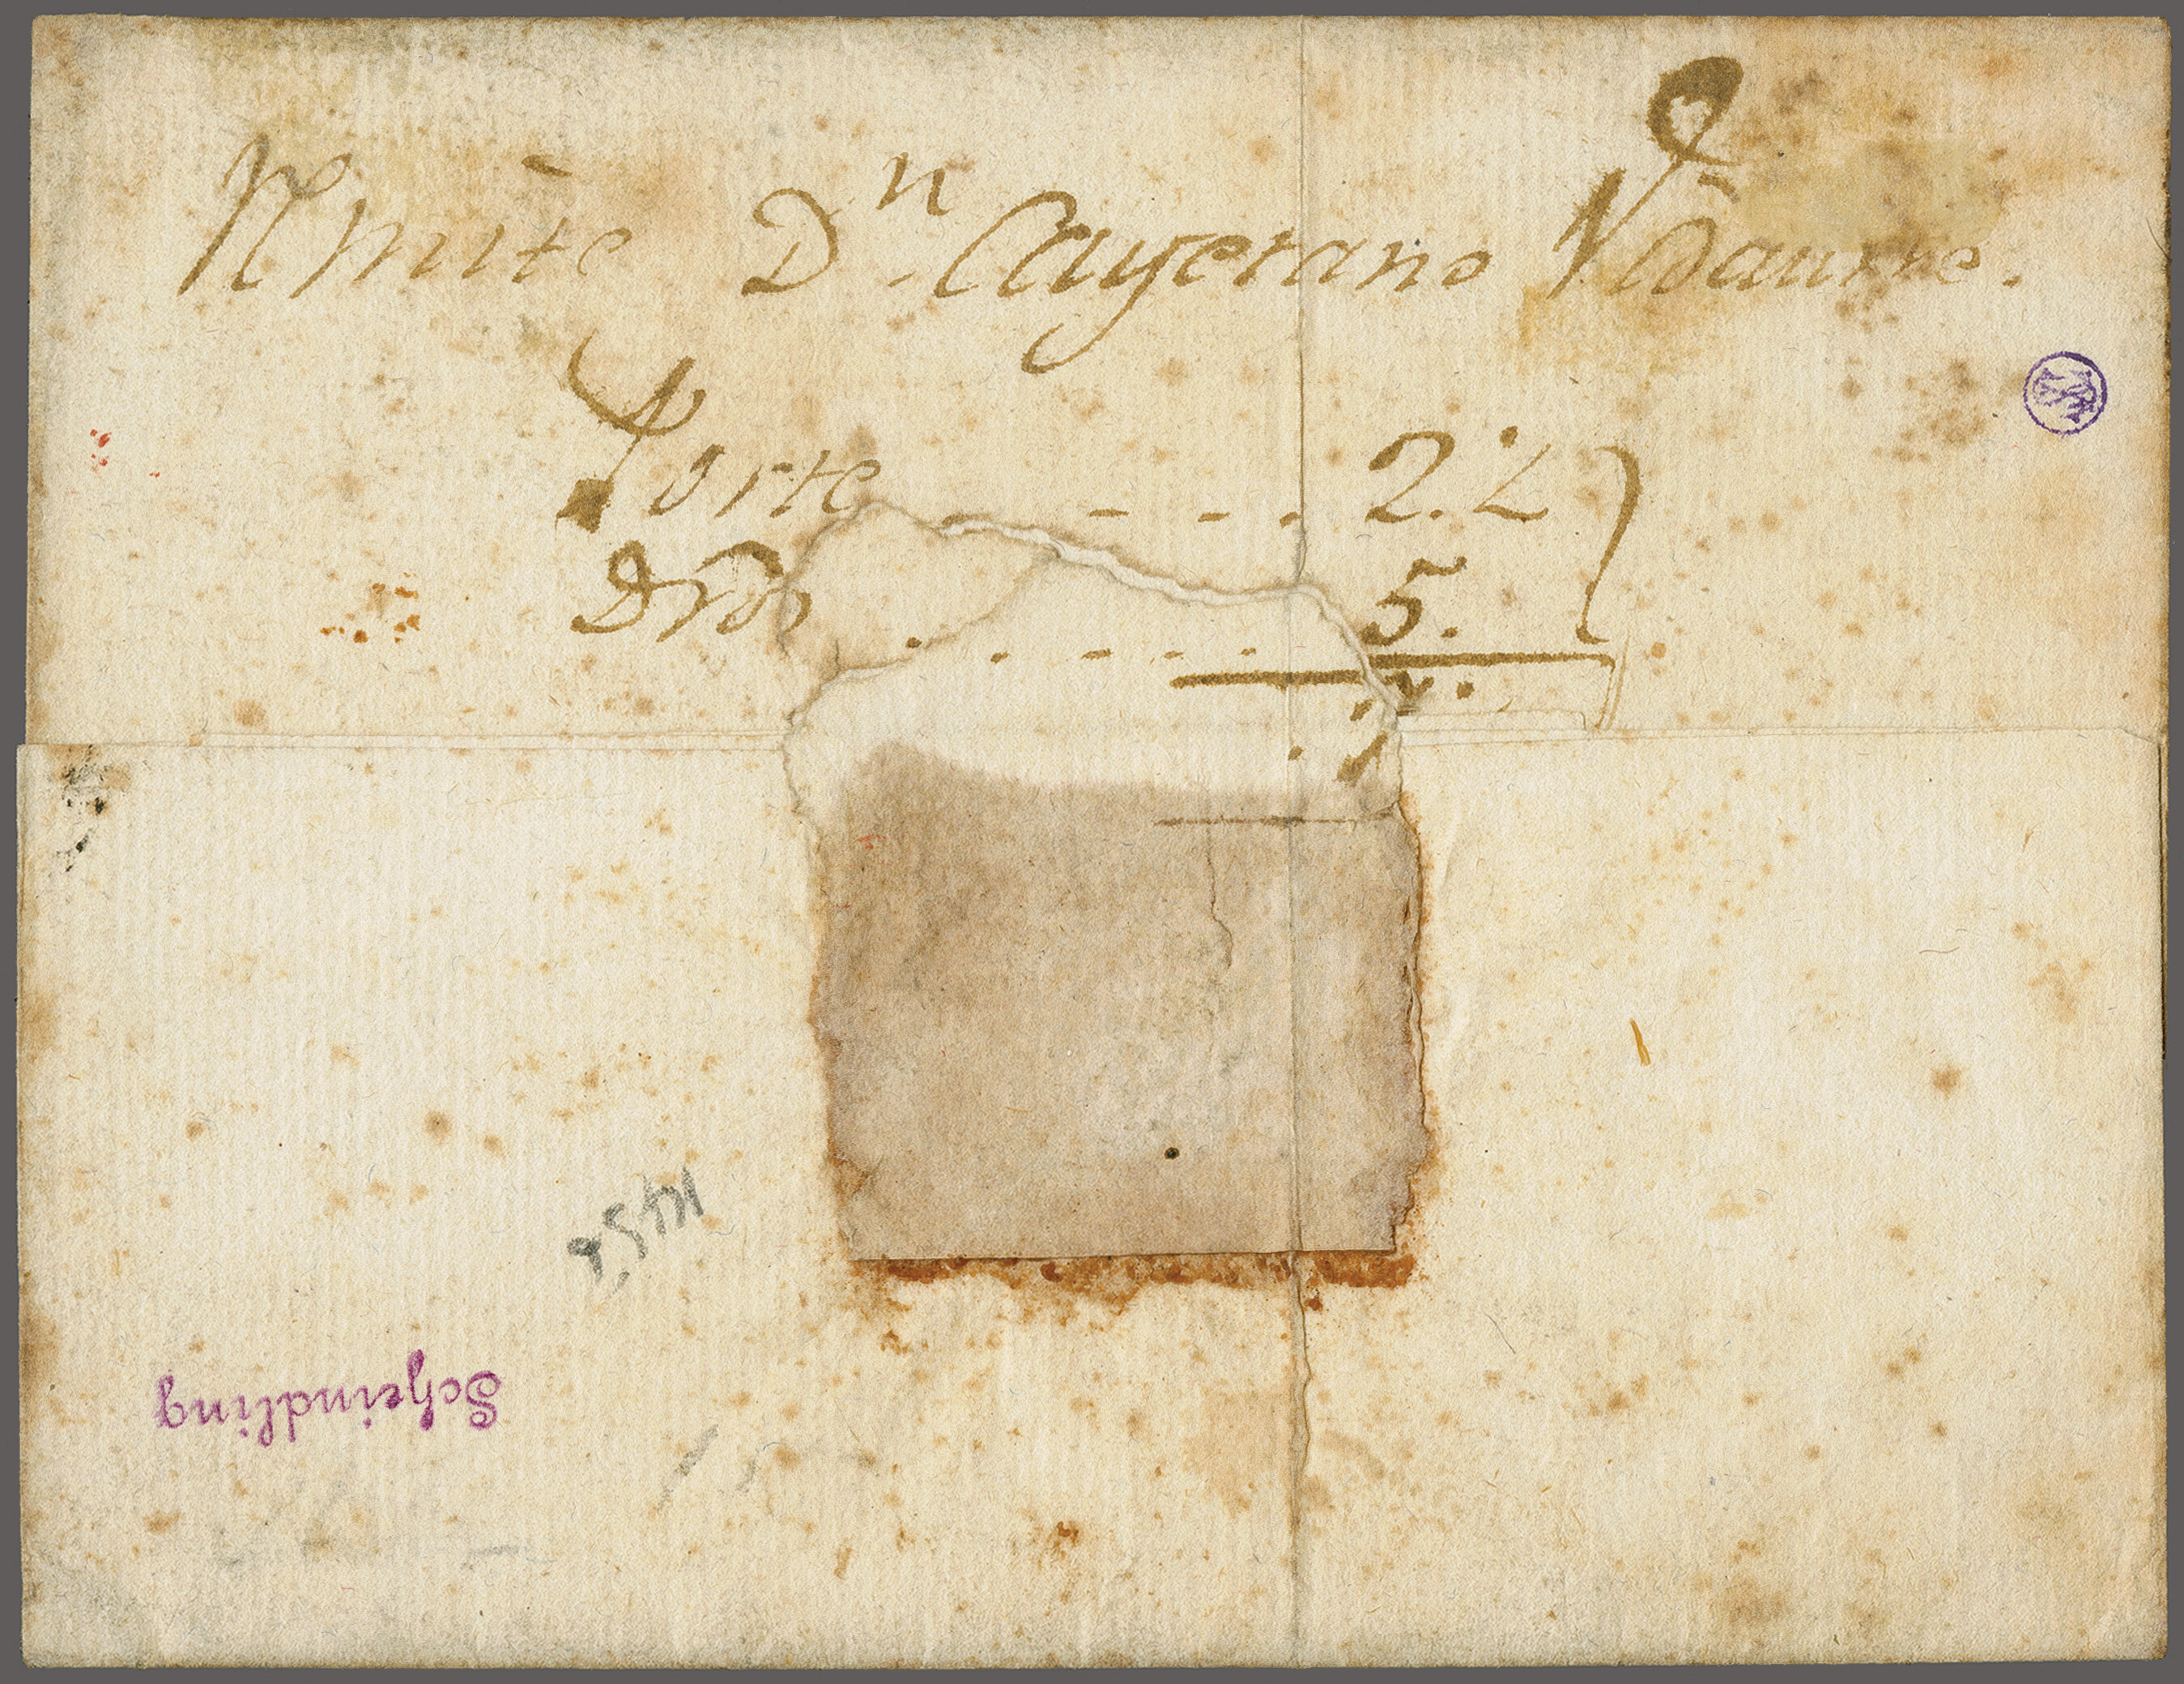 Rmite Dn. Cayetano Vidaurre.
Porte - - - 2. 2
Dros . . - - - 5.
Scheindling